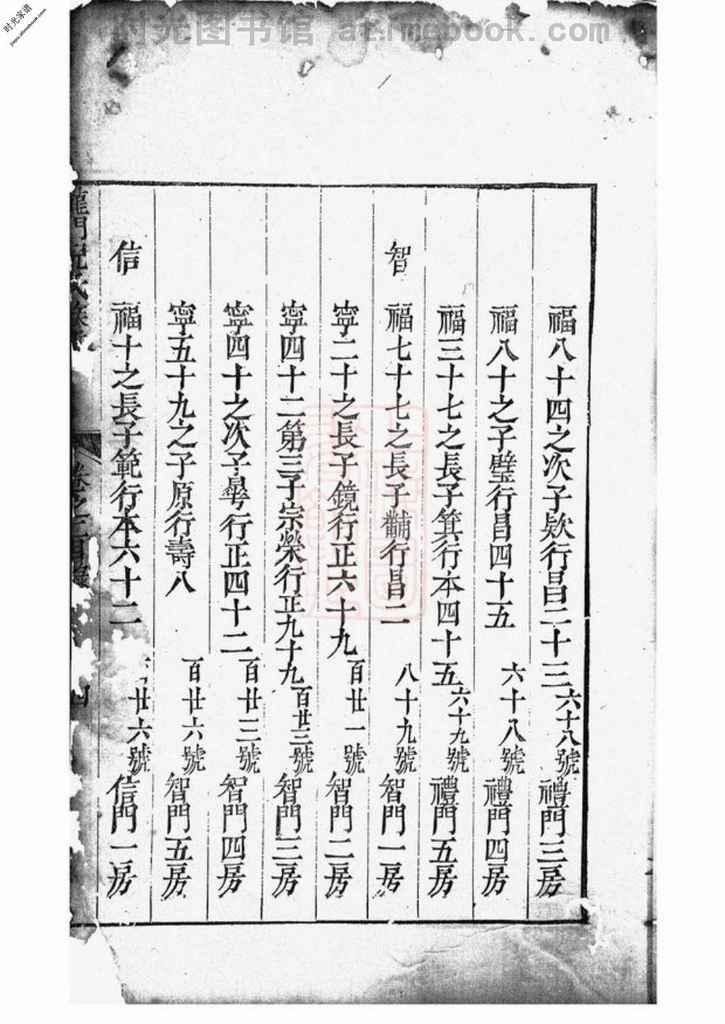 时光图书馆 at.imebook.com
时光家谱
福八十四之次子欵行昌二十三 六十八號 禮門三房
福八十之子璧行昌四十五 六十八號 禮門四房
福三十七之長子箕行本四十五 六十九號 禮門五房
智 福七十七之長子黼行昌二 八十九號 智門一房
寧二十之長子鏡行正六十九 百廿一號 智門二房
寧四十二第三子宗榮行正九十九 百廿三號 智門三房
寧四十之次子行正四十二 百廿三號 智門四房
寧五十九之子原行壽八 百廿六號 智門五房
信 福十之長子範行本六十二 廿六號 信門一房
卷之